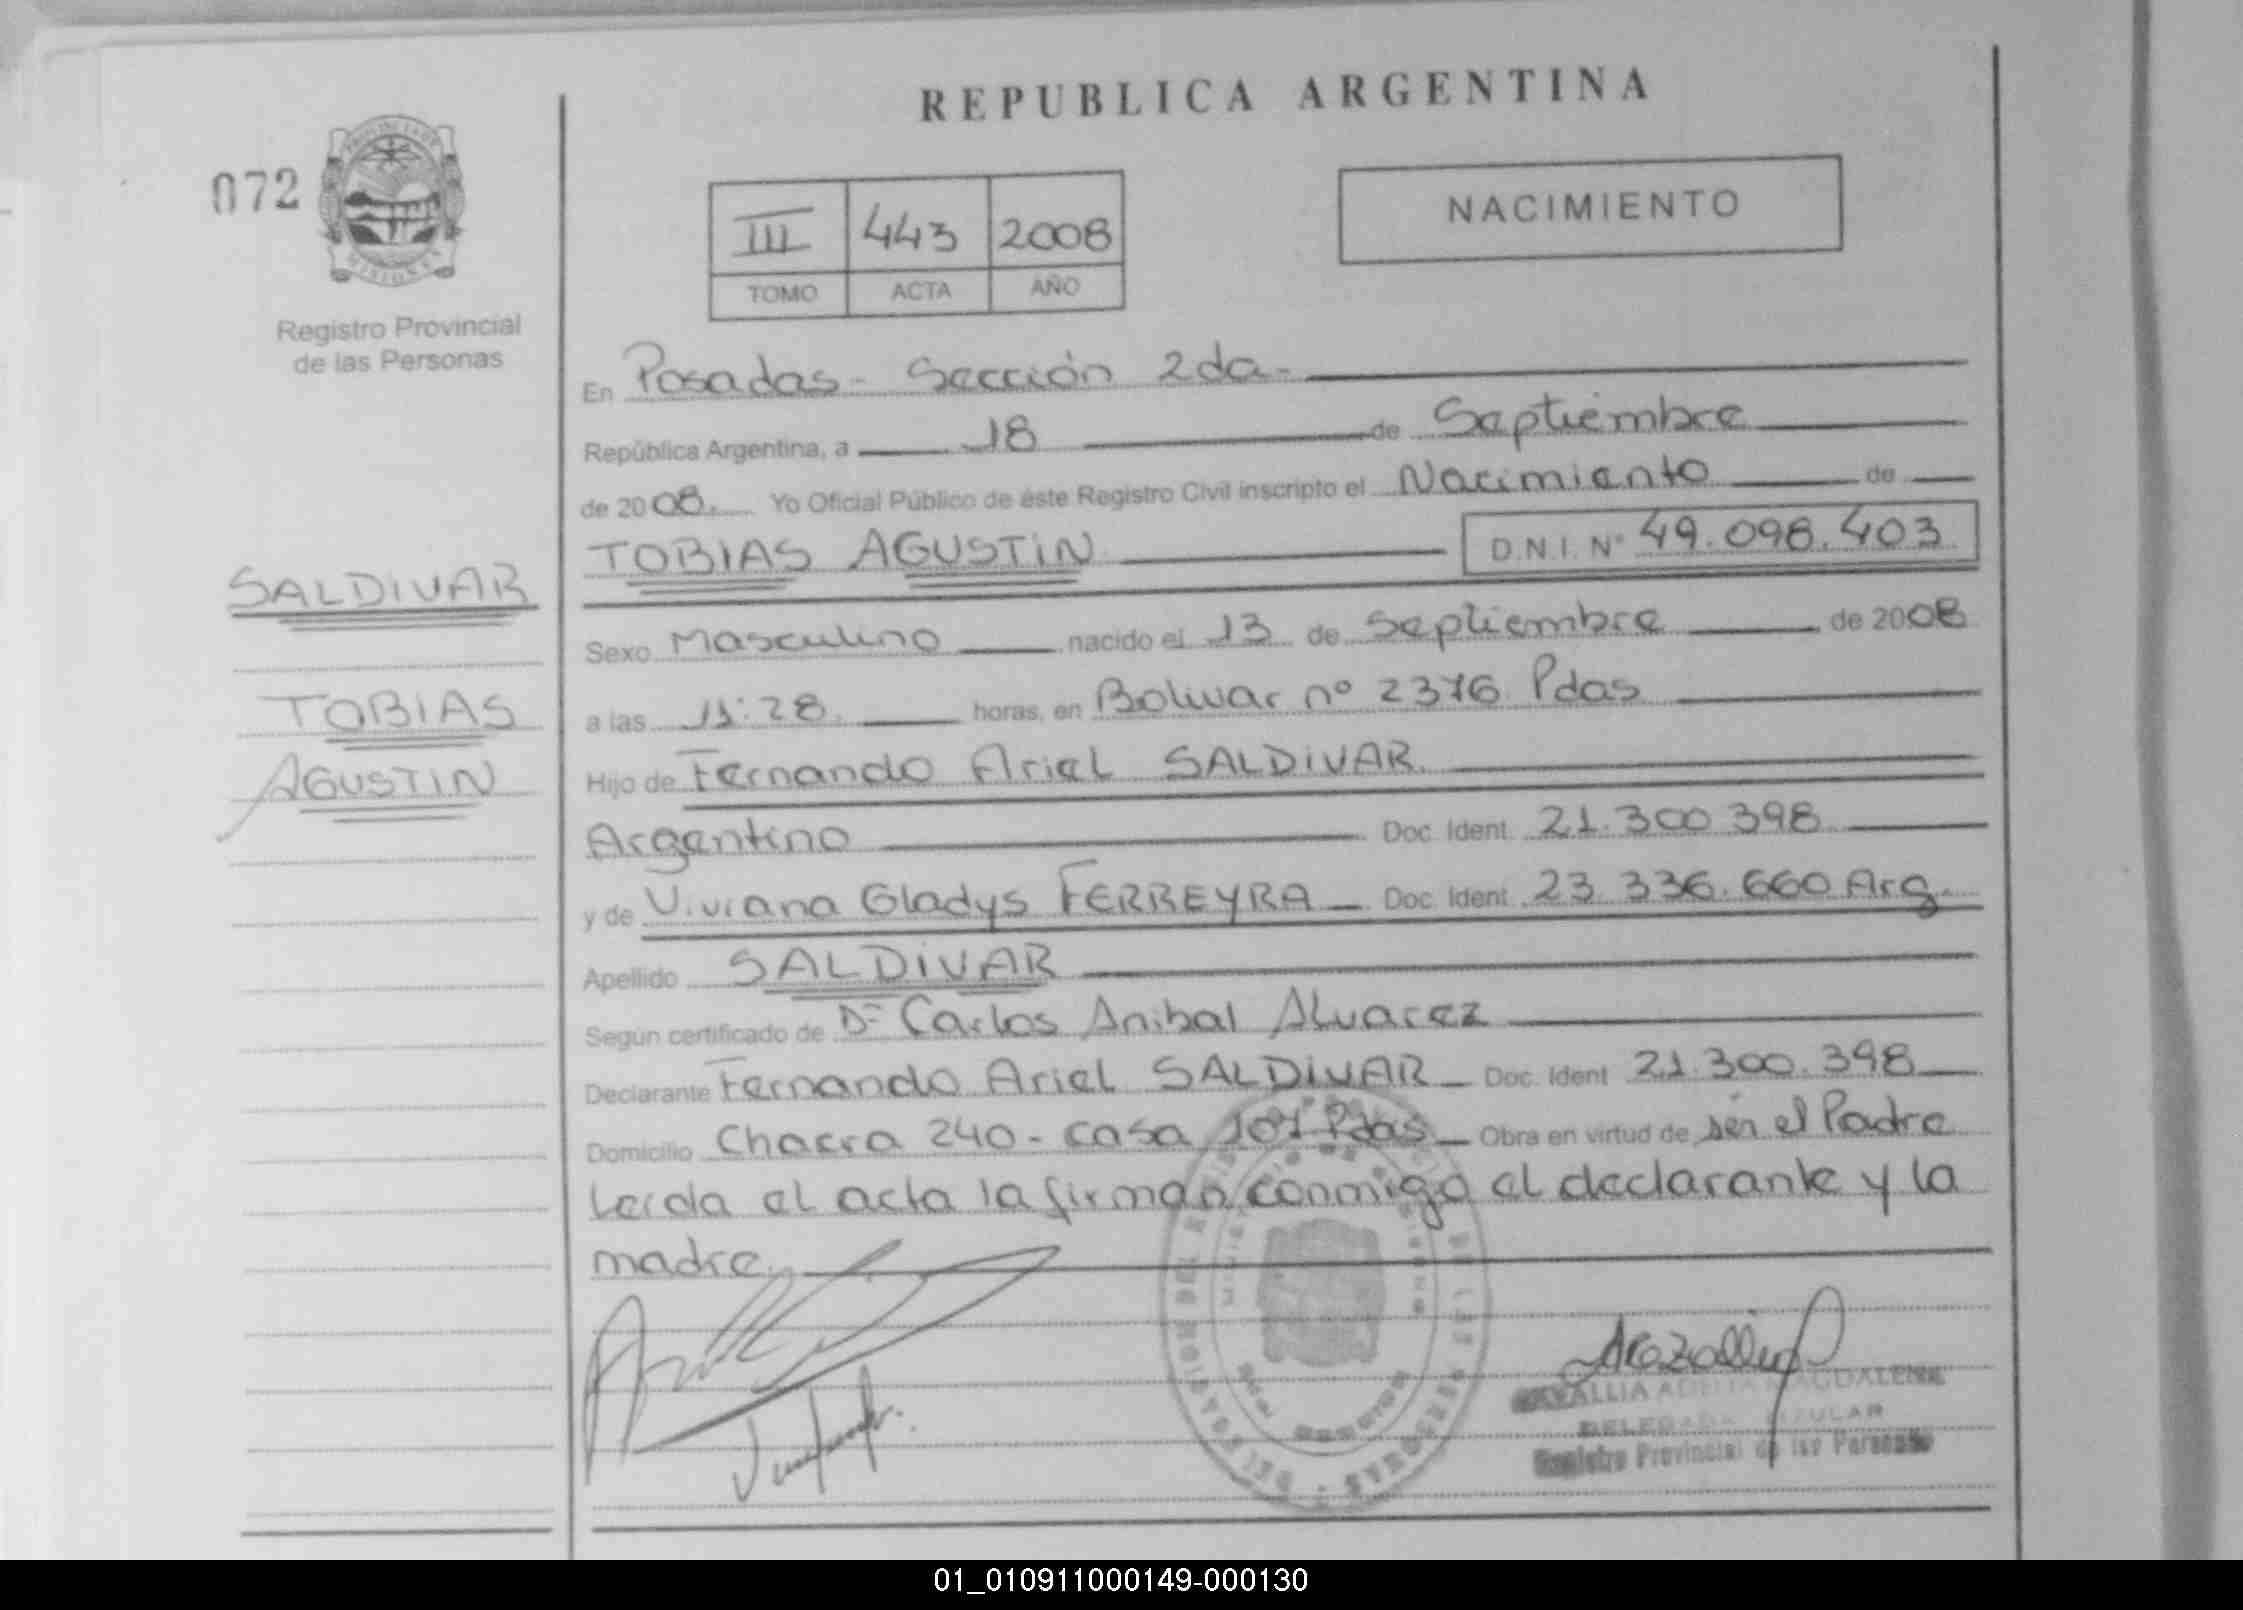 REPUBLICA ARGENTINA
072
PROVINCIA DE
MISIONES
Registro Provincial
de las Personas
III 443 2008
TOMO ACTA AÑO
NACIMIENTO
En Posadas - Sección 2da -
República Argentina, a 18 de Septiembre
de 2008. Yo Oficial Público de éste Registro Civil inscripto el Nacimiento de
TOBIAS AGUSTIN D.N.I. Nº 49.098.403
SALDIVAR
TOBIAS
AGUSTIN
Sexo Masculino nacido el 13 de Septiembre de 2008
a las 11:28 horas, en Bolivar nº 2376 Pdas
Hijo de Fernando Ariel SALDIVAR
Argentino Doc. Ident. 21.300.398
y de Viviana Gladys FERREYRA Doc. Ident. 23.336.660 Arg.
Apellido SALDIVAR
Según certificado de Dr Carlos Anibal Alvarez
Declarante Fernando Ariel SALDIVAR Doc. Ident 21.300.398
Domicilio Chacra 240 - casa Pdas Obra en virtud de ser el Padre
Leida el acta la firman conmigo el declarante y la
madre.
MAGDALENA
DELEGADA TITULAR
Registro Provincial de las Personas
01_010911000149-000130